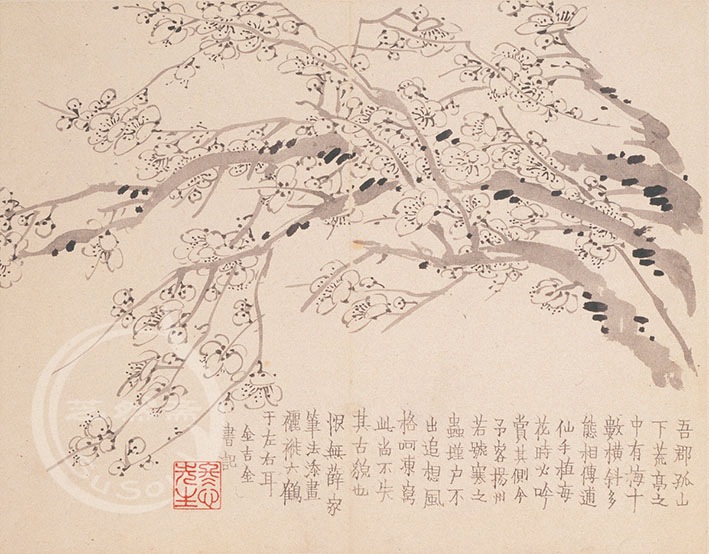 吾郡孤山
下荒亭之
中有梅十
數橫斜多
態相傳逋
仙手植每
花時必吟
賞其側今
予客揚州
若號寒之
蟲墐户不
出追想風
格呵凍寫
此尚不失
其古貌也
恨無薛家
筆法添畫
褵褷六鶴
于左右耳
金吉金
書記